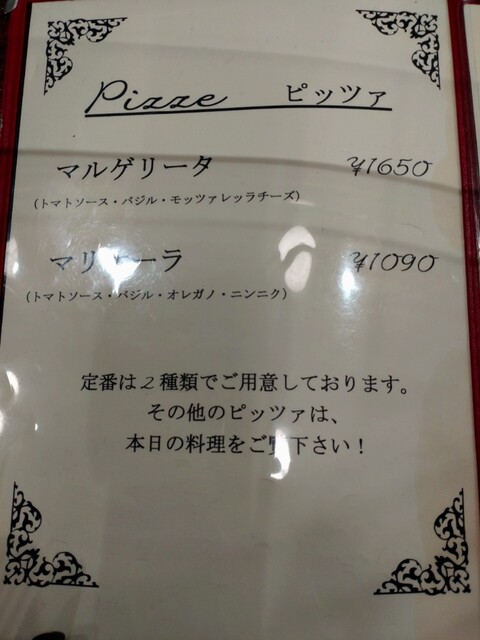 Pizze ピッツァ
マルゲリータ ¥1650
(トマトソース・バジル・モッツァレッラチーズ)
マリナーラ ¥1090
(トマトソース・バジル・オレガノ・ニンニク)
定番は2種類でご用意しております。
その他のピッツァは、
本日の料理をご覧下さい！